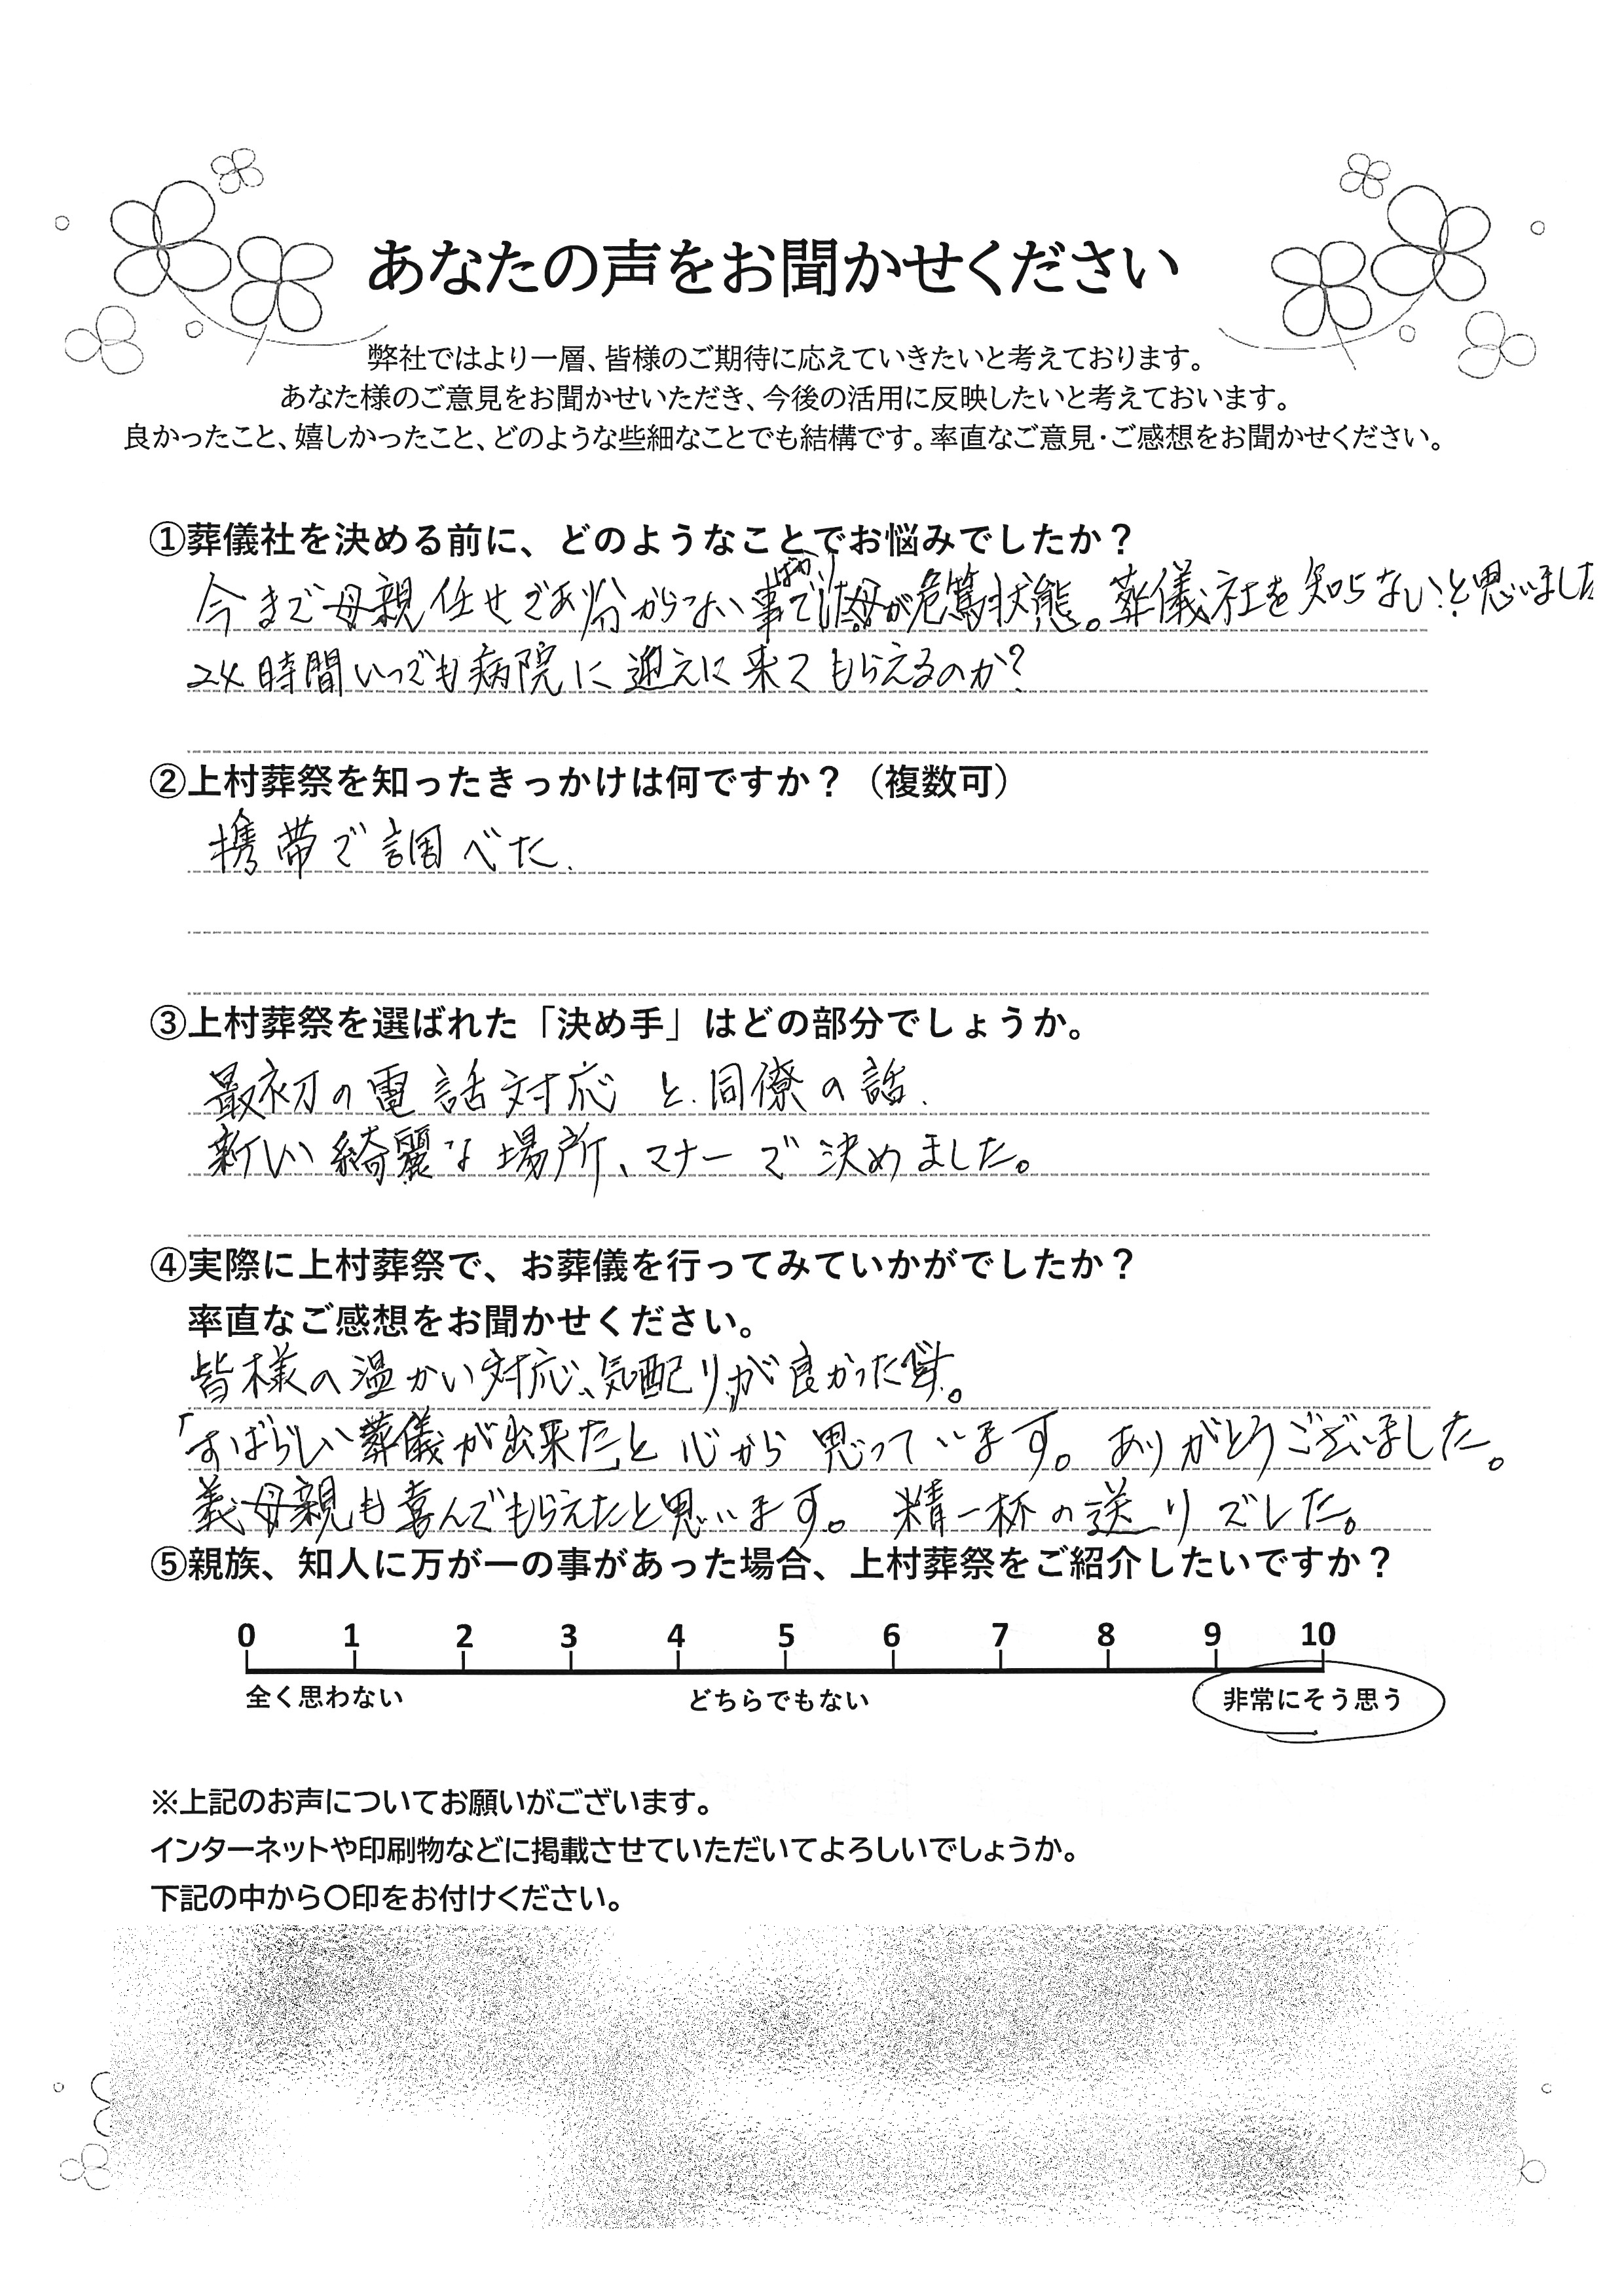 あなたの声をお聞かせください
弊社ではより一層、皆様のご期待に応えていきたいと考えております。
あなた様のご意見をお聞かせいただき、今後の活用に反映したいと考えておいます。
良かったこと、嬉しかったこと、どのような些細なことでも結構です。率直なご意見・ご感想をお聞かせください。
①葬儀社を決める前に、どのようなことでお悩みでしたか？
今まで母親任せで分からない事ばかりで母が危篤状態。葬儀社を知らない!と思いました
24時間いつでも病院に迎えに来てもらえるのか?
②上村葬祭を知ったきっかけは何ですか？（複数可）
携帯で調べた.
③上村葬祭を選ばれた「決め手」はどの部分でしょうか。
最初の電話対応と.同僚の話.
新しい綺麗な場所、マナーで決めました。
④実際に上村葬祭で、お葬儀を行ってみていかがでしたか？
率直なご感想をお聞かせください。
皆様の温かい対応、気配りが良かったです。
「すばらしい葬儀が出来た」と心から思っています。ありがとうございました。
義母親も喜んでもらえたと思います。精一杯の送りでした。
⑤親族、知人に万が一の事があった場合、上村葬祭をご紹介したいですか？
0 1 2 3 4 5 6 7 8 9 10
全く思わない どちらでもない 非常にそう思う
※上記のお声についてお願いがございます。
インターネットや印刷物などに掲載させていただいてよろしいでしょうか。
下記の中から〇印をお付けください。